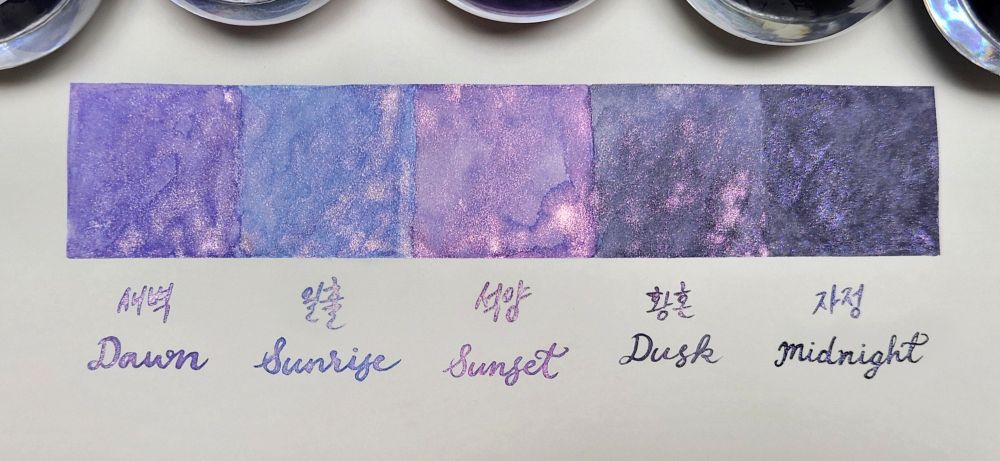 새벽 일출 석양 황혼 자정
Dawn Sunrise Sunset Dusk midnight